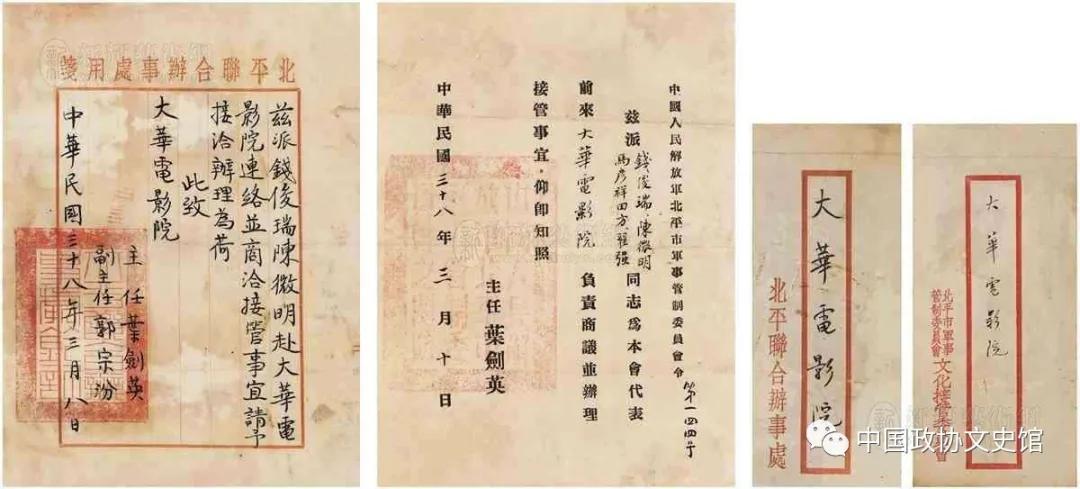 北平聯合辦事處用箋
茲派錢俊瑞陳微明赴大華電
影院連絡並商洽接管事宜請予
接洽辦理為荷
此致
大華電影院
主任葉劍英
副主任郭宗汾
中華民國三十八年三月八日
中國人民解放軍北平市軍事管制委員會令 第一四四号
茲派錢俊瑞、陳微明
馬彥祥田方、羅強同志為本會代表
前來大華電影院負責商議並辦理
接管事宜，仰即知照
主任 葉劍英
中華民國三十八年三月十日
大華電影院
北平聯合辦事處
大華電影院
北平市軍事
管制委員會
文化接管委員會
中国政协文史馆